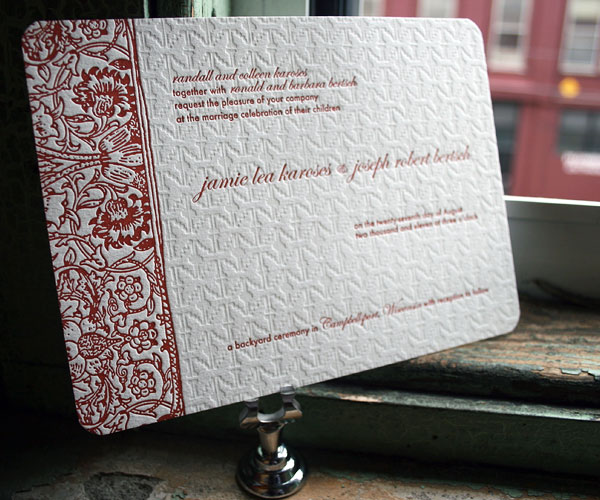 randall and colleen karoses
together with ronald and barbara bertsch
request the pleasure of your company
at the marriage celebration of their children
jamie lea karoses & joseph robert bertsch
on the twenty-seventh day of august
two thousand and eleven at three o'clock
a backyard ceremony in Campbellsport, Wisconsin with reception to follow